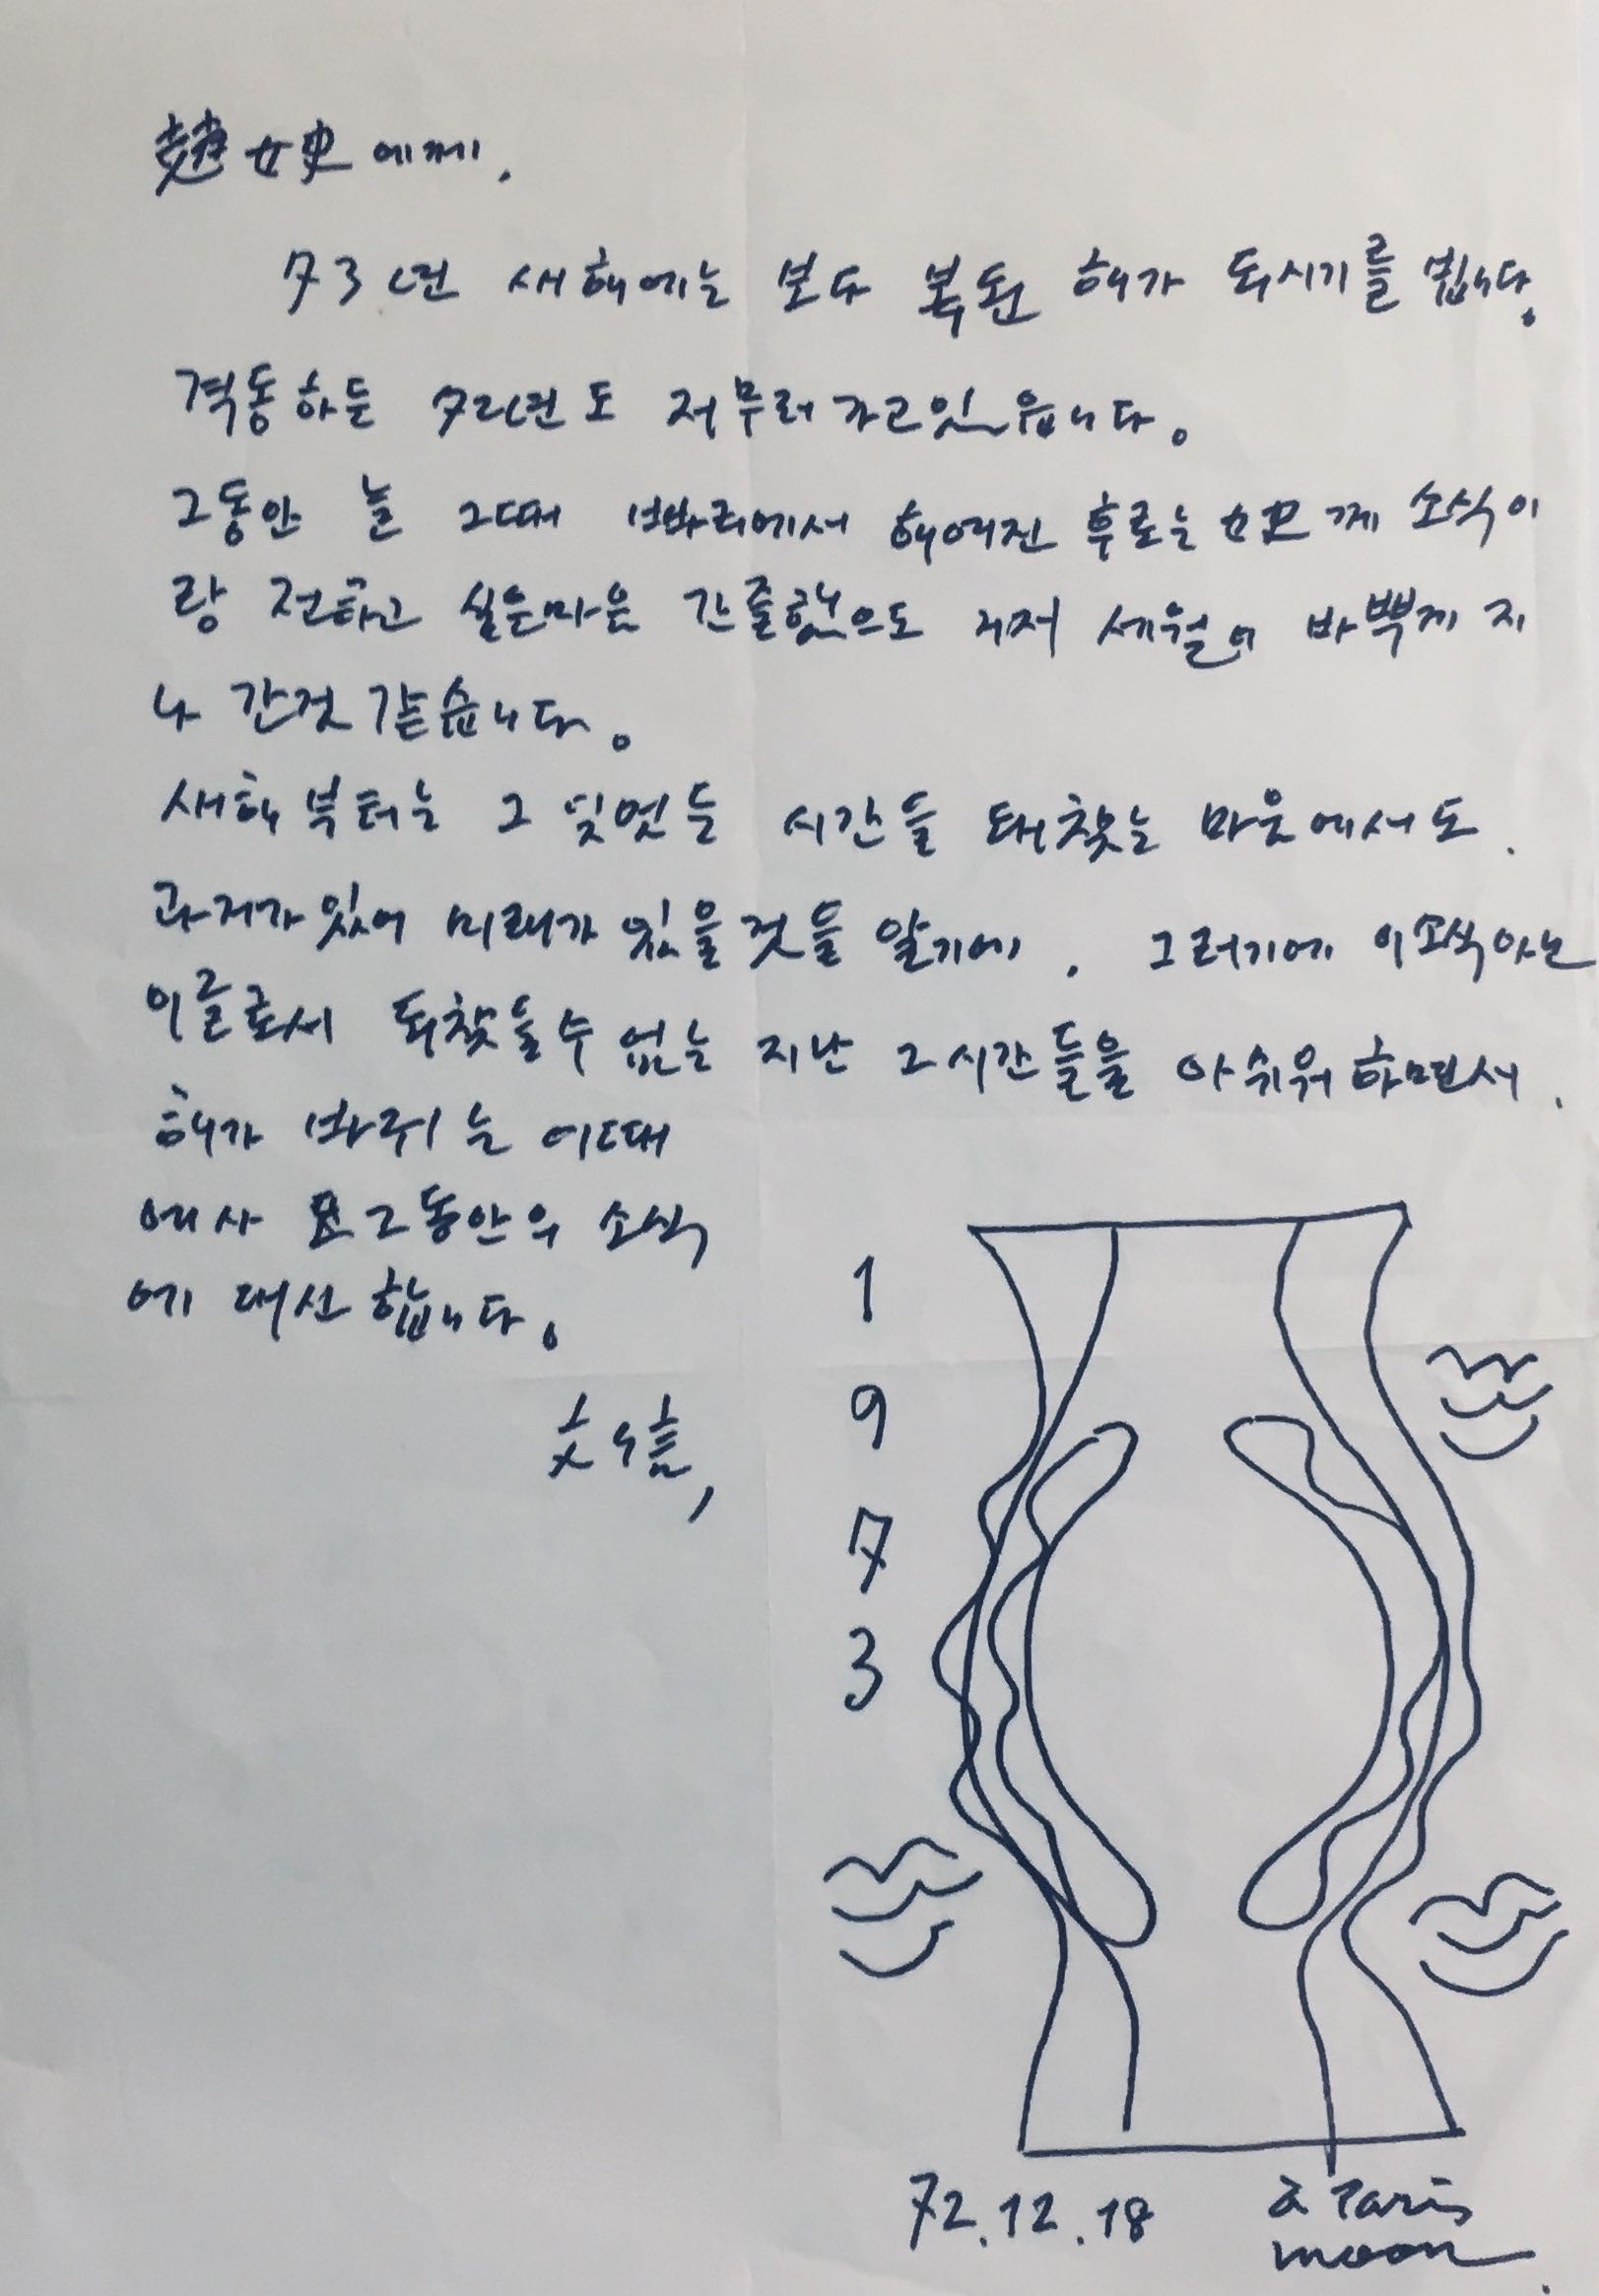 趙女史에께.
73년 새해에는 보다 복된 해가 되시기를 빕니다.
격동하든 72년도 저무러가고있읍니다.
그동안 늘 그때 빠리에서 헤여진 후로는 女史께 소식이
랑 전하고 싶은마음 간줄했으도 세월이 바쁘게 지
나 간것 같습니다.
새해부터는 그 잊었든 시간들 되찾는 마음에서도.
과거가있어 미래가 있을것을 알기에. 그러기에 이소식아닌
이글로서 되찾을수없는 지난 그시간들을 아쉬워하면서.
해가 바뀌는 이때
에사 그동안의 소식
에 대신 합니다.
1
9
7
3
72.12.18
à Paris
moon